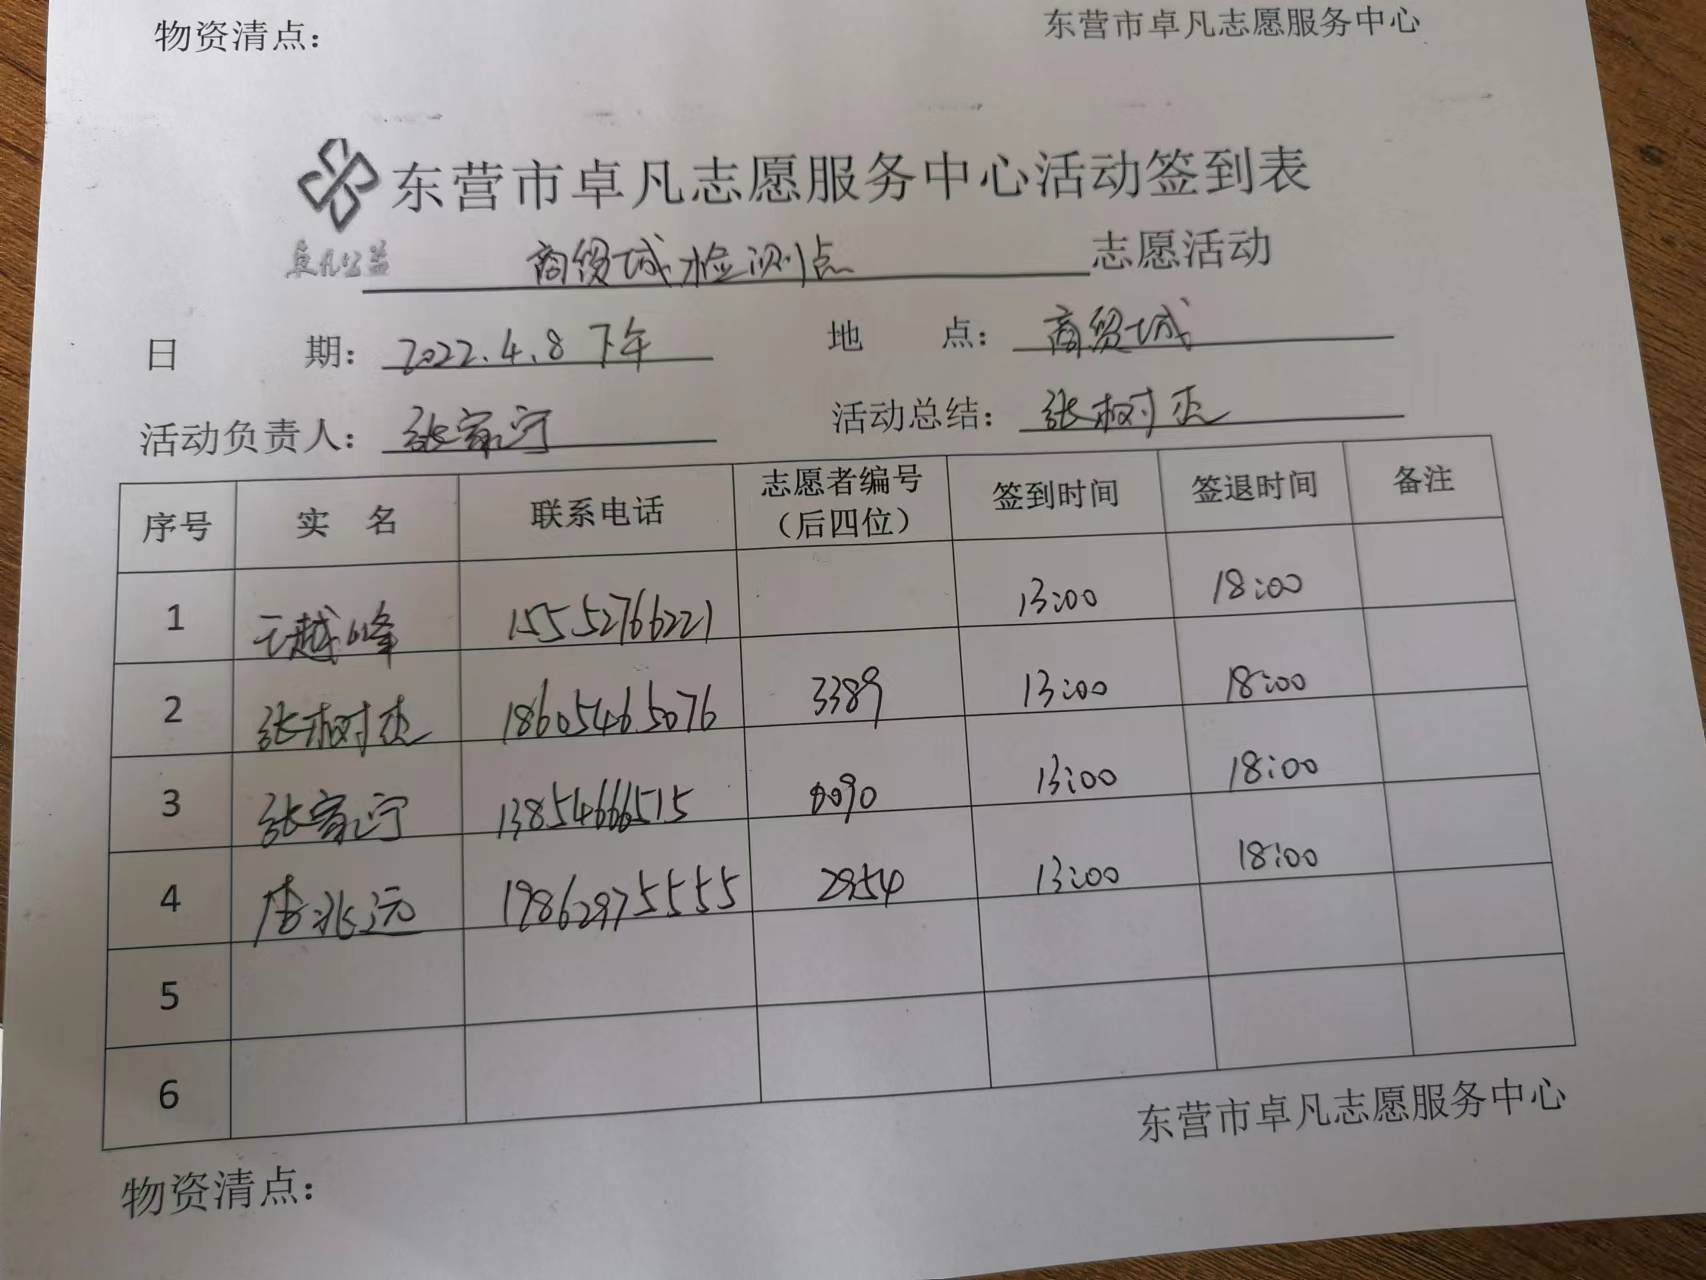 物资清点：
东营市卓凡志愿服务中心
东营市卓凡志愿服务中心活动签到表
卓凡公益
商贸城检测点 志愿活动
日 期：2022.4.8 下午 地 点：商贸城
活动负责人：张家宁 活动总结：张树杰
序号 实 名 联系电话 志愿者编号（后四位） 签到时间 签退时间 备注
1 云越峰 15552766221 13:00 18:00
2 张树杰 18605465076 3389 13:00 18:00
3 张家宁 13854666515 0090 13:00 18:00
4 唐兆远 19862975555 2954 13:00 18:00
5
6
东营市卓凡志愿服务中心
物资清点：